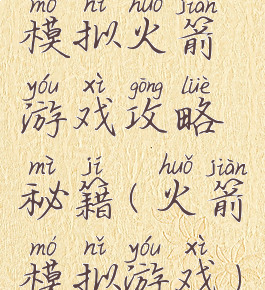 mó nǐ huǒ jiàn
模拟火箭
yóu xì gōng lüè
游戏攻略
mì jí huǒ jiàn
秘籍(火箭
mó nǐ yóu xì
模拟游戏)